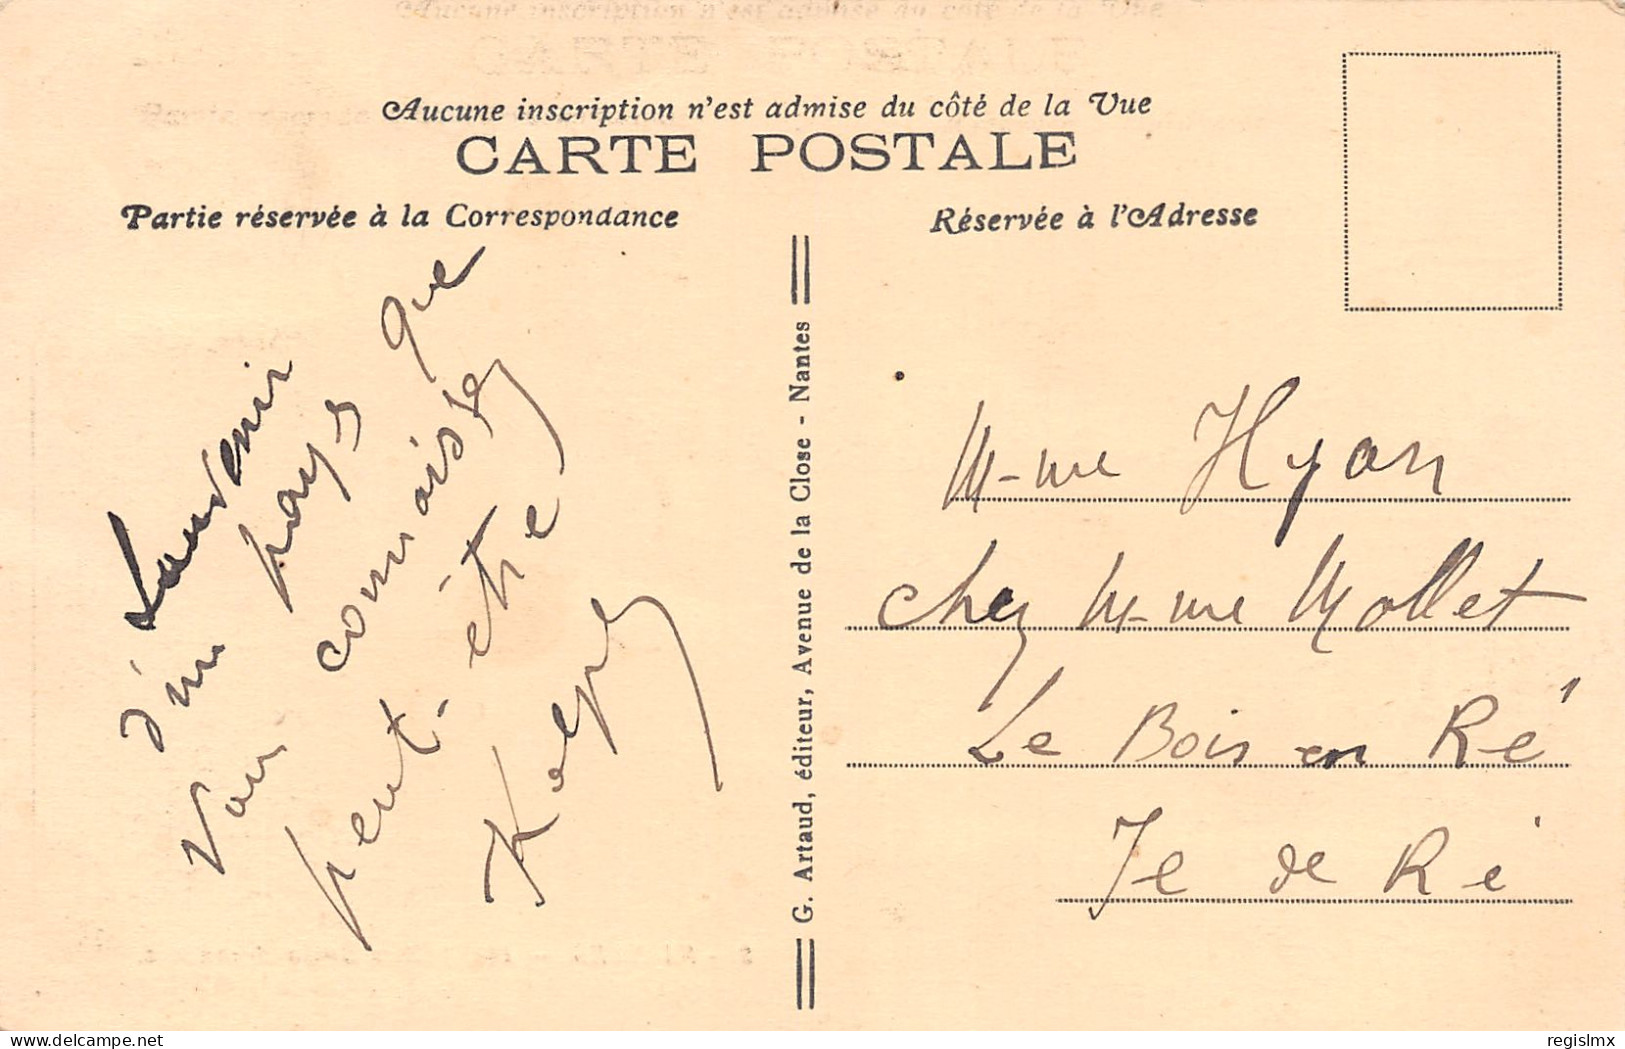 Aucune inscription n'est admise du côté de la Vue
CARTE POSTALE
Partie réservée à la Correspondance
Réservée à l'Adresse
Souvenir
d'un pays que
Vous connaissez
peut-être
G. Artaud, éditeur, Avenue de la Close - Nantes
M-me Hyon
chez M-me Mollet
Le Bois en Ré
Ile de Ré
delcampe.net
regislmx